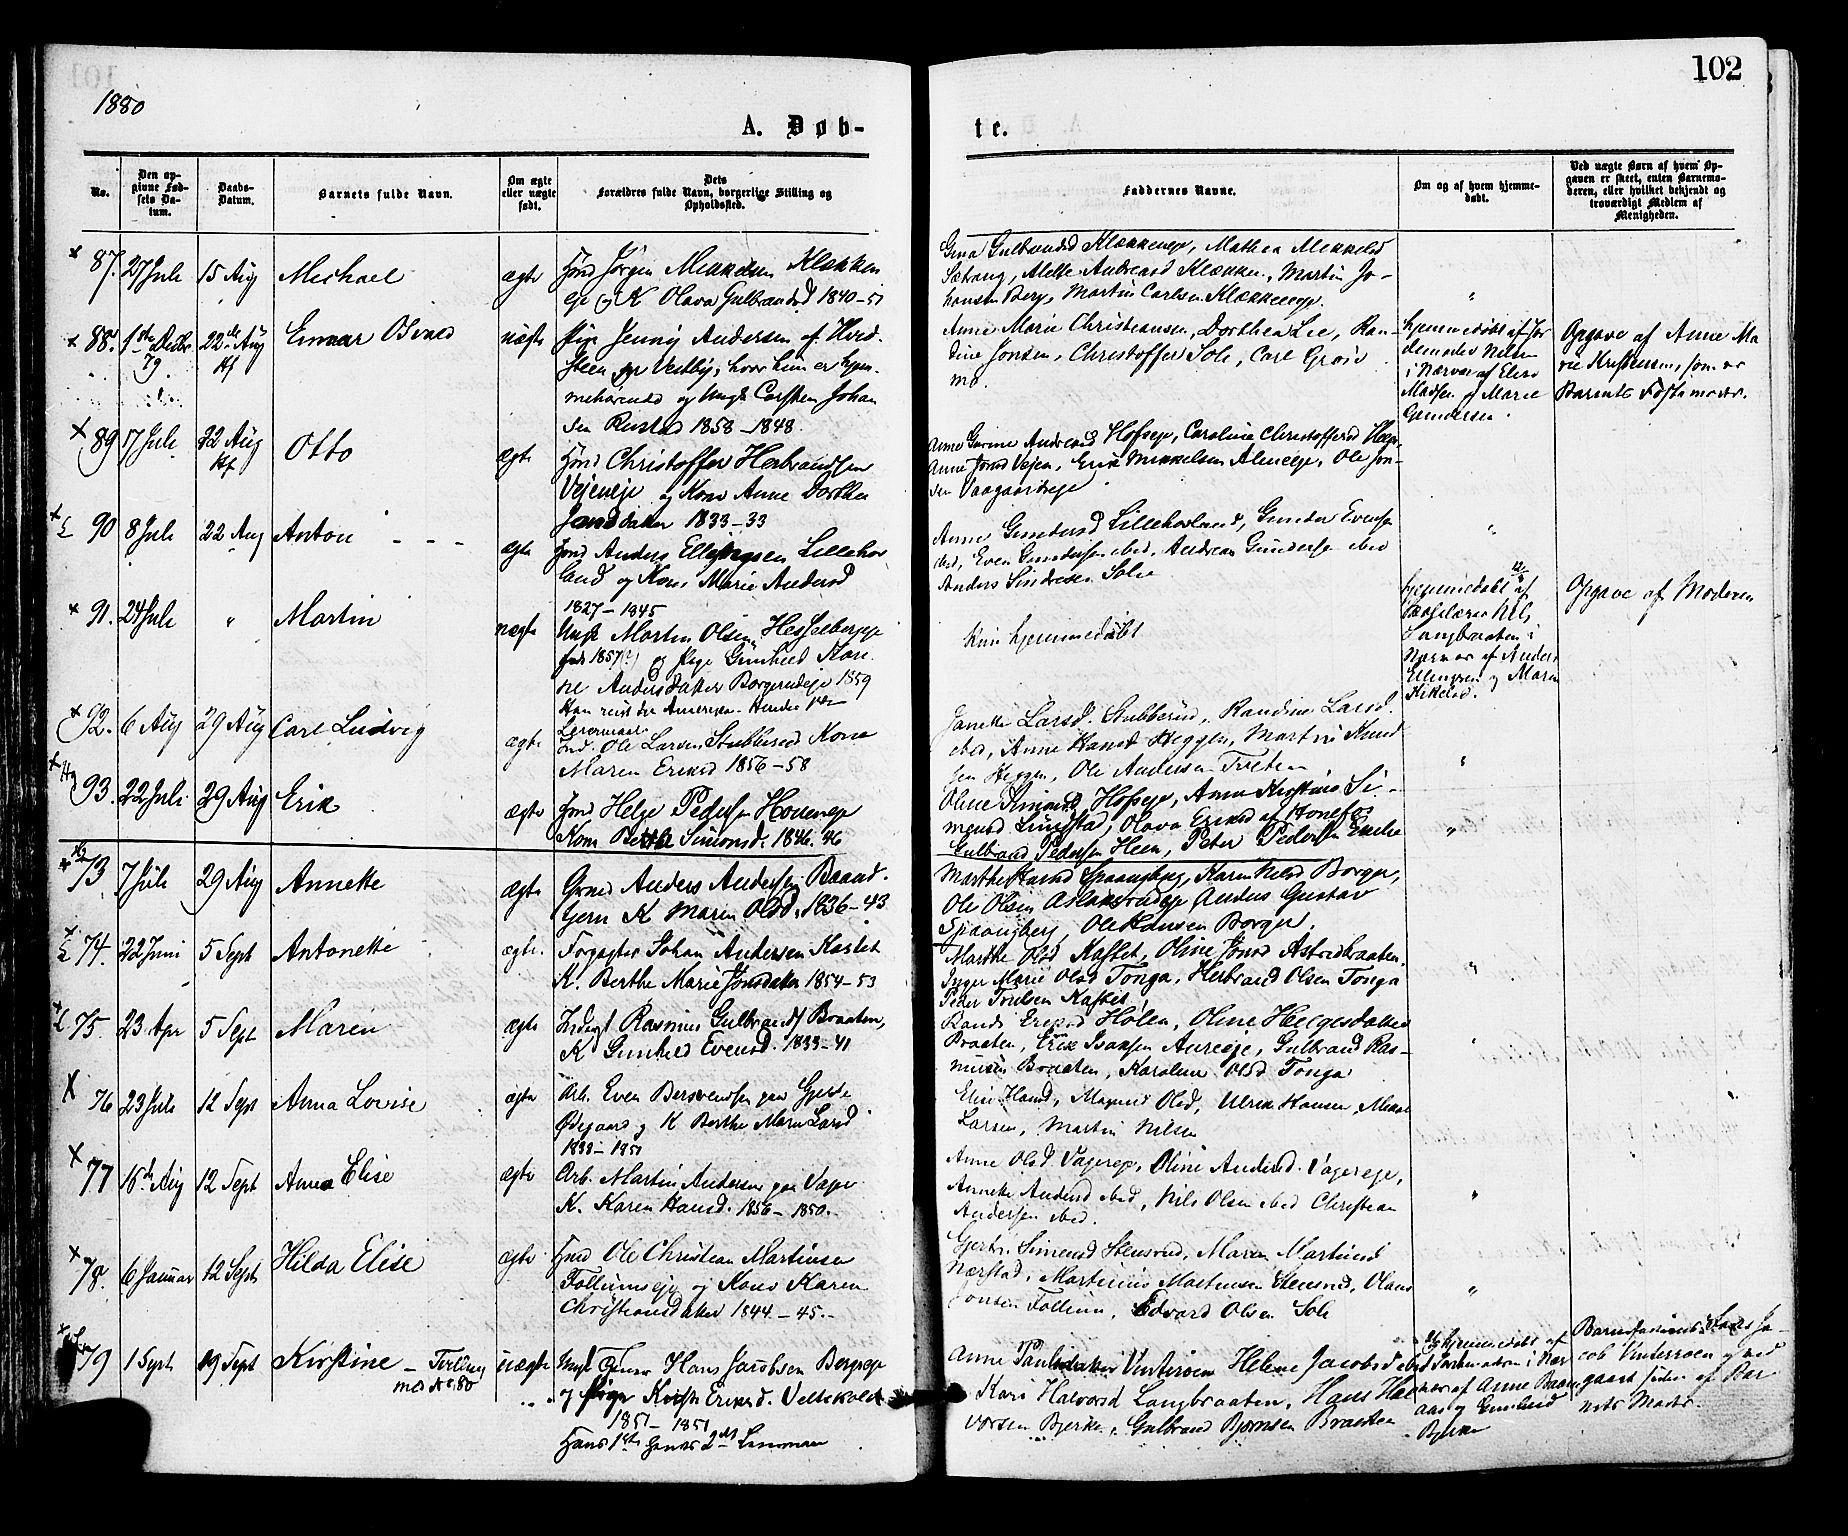 102
1880
A. Døb-
te.
No.
Den op-
givne Fød-
sels Da-
tum.
Daabs-
Datum.
Barnets fulde Navn.
Om ægte
eller uægte
født.
Dets
Forældres fulde Navn, borgerlige Stilling og
Opholdssted.
Faddernes Navne.
Om og af hvem hjemme-
døbt.
Ved uægte Børn af hvem Op-
gaven er skeet, enten Barnemo-
deren, eller hvilket bekjendt og
troværdigt Medlem af
Menigheden.
87. 27 Juli 15 Aug Michael ægte Hmd Jørgen Mikkelsen Klækken
eje og K Olava Gulbrandsd 1840-51
Gina Gulbrandsd Klækkeneje, Mathea Mikkelsd
Sætrang, Mette Andreasd Klækken, Martin Jo-
hansen Berg, Martin Carlsen Klækkeneje.
88. 22de Aug Einar uægte Pige Jenny Andersen af Hvid-
steen pr Vestby, hvor hun er hjem-
mehørende og Ungk Carsten Johan
sen Rustad 1858-1848.
Anne Marie Christiansen, Dorthea Lie, Ran-
dine Jonsen, Christoffer Sole, Carl Grøse
mo.
hjemmedøbt af Jor
demoder Nilsen
i Nærvær af Elise
Madsen og Marie
Gundersen.
Opgave af Anne Ma
rie Kristensen, som er
Barnets Fostermoder.
89 17 Juli 22 Aug Otto ægte Hmd Christoffer Herbrandsen
Vejeneje og Kone Anne Dorthea
Jonsdatter 1833-33
Anne Gurine Andreasd Hofseje, Caroline Christoffersd
Anne Jonsd Vejen, Erik Mikkelsen Almeje, Ole Jon-
sen
90 8 Juli 22 Aug Anton ægte Hmd Anders Ellingsen Lillehov
land og Kone Marie Andersd
1827-1845
Anne Gundersd Lillehovland, Gunder Evensen
ibid, Even Gundersen ibid, Andreas Gundersen ibid
Anders Sindresen Solie
91. 24 Juli " Martin uægte Ungk Martin Olsen Hesselbergeje
født 1857(?) og Pige Gunhild Kari
ne Andersdatter Borgerudeje 1859
Han reist til Amerika.
Kun hjemmedøbt
hjemmedøbt af
Nils
Langbraaten i
Nærvær af Anders
Ellingsen og Maria
Opgave af Moderen
92. 6 Aug 29 Aug Carl Ludvig ægte
Ole Larsen Stubberud Kone
Maren Eriksd 1856-58
Janette Larsd. Stubberud, Randine Larsd.
ibid, Anne Hansd Heggen, Martin Knud
sen Heggen, Ole Andersen Tveten
93. 22 Juli 29 Aug Erik ægte Hmd Helge Pedersen Hoveneje
Kone Berthe Simonsd. 1846.46
Oline Simonsd Hofseje, Anne Kirstine Si-
monsd Lundstad, Olava Eriksd af Hønefos
Gulbrand Pedersen Heen, Peter Pedersen
73 7 Juli 29 Aug Annette ægte Grmd Anders Andersen Baard-
gern K Maren Olsd. 1836-43
Marthe Hansd Spaangberg, Karen Nilsd Borger,
Ole Olsen Aslaksrudeje Anders Gustav
Spaangberg, Ole Hansen Borger.
74. 22 Juni 5 Sept Antonette ægte. Forpagter Johan Andersen Kastet
K. Berthe Marie Jonsdatter 1854-53
Marthe Olsd Kastet, Oline Jonsd Astridbraaten,
Inger Marie Olsd Tonga, Herbrand Olsen Tonga
Peder Troelsen Kastet,
75. 23 Apr 5 Sept Maren ægte Inderst Rasmus Gulbrands Braaten,
K Gunhild Evensd. 1833-41
Randi Eriksd Holen, Oline Helgesdatter
Braaten, Erik Isaksen Aureeje, Gulbrand Ras-
musen Braaten, Karoline Olsd Tonga
76 23 Juli 12 Sept Anna Lovise ægte Arb. Even Bersvendsen paa Gjeste
Ødegaard og K Berthe Marie Larsd
Elise Hansd, Magnid Olsd, Ulrik Hansen, Mikkel
Larsen, Martin Nilsen
77 15de Aug 12 Sept Anna Elise ægte Arb. Martin Andersen paa Vager
K. Karen Hansd. 1856-1850.
Anne Olsd. Vagereje, Oline Andersd. Vagereje,
Annette Andersd ibid, Nils Olsen ibid Christian
Andersen ibid.
78. 6 Januar 12 Sept Hilda Elise ægte Hmd Ole Christian Martinsen
Follumseje og Kone Karen
Christiansdatter 1844-45.
Simensd Stensrud, Maren Martinsd
Nærstad, Martinius Martinsen Stensrud, Olaus
Jonsen Follum, Edvard Olsen Sole
79 1 Sept 19 Sept Kirstine - Tvilling
med No 80 uægte Ungk Hans Jacobsen Bergseje
og Pige Kirsti Eriksd. Veltekold
1851-1851
Hans 1ste hendes 2det Leiermaal
Anne Paulsdatter Vinterøen Helene Jacobsd ibid
Kari Halvorsd Langbraaten, Hans Hal
vorsen Bjerke, Gulbrand Bjørnsen Braaten
hjemmedøbt af
i Nær
vær af Anne Baar
og Gunhild
Bjerke
Barnefaderens Fader Ja-
cob Vinterøen og ved
siden af Bar
nets Moder.